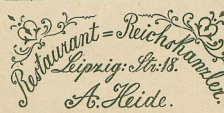 Restaurant = Reichskanzler
Leipzig: Str: 18.
A. Heide.